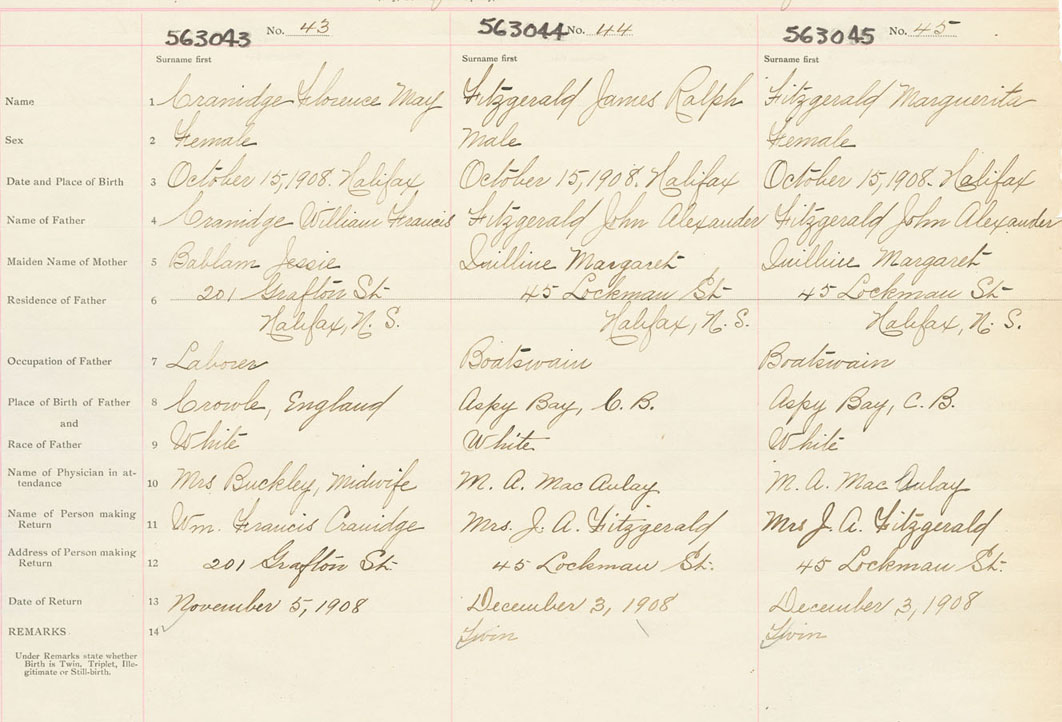 563043 No. 43 563044 No. 44 563045 No. 45
Surname first Surname first Surname first
Name 1 Cranidge Florence May Fitzgerald James Ralph Fitzgerald Marguerita
Sex 2 Female Male Female
Date and Place of Birth 3 October 15, 1908. Halifax October 15, 1908. Halifax October 15, 1908. Halifax
Name of Father 4 Cranidge William Francis Fitzgerald John Alexander Fitzgerald John Alexander
Maiden Name of Mother 5 Bablam Jessie Margaret Margaret
Residence of Father 6 201 Grafton St. 45 Lockman St. 45 Lockman St.
Halifax, N. S. Halifax, N. S. Halifax, N. S.
Occupation of Father 7 Laborer Boatswain Boatswain
Place of Birth of Father 8 Crowle, England Aspy Bay, C. B. Aspy Bay, C. B.
and
Race of Father 9 White White White
Name of Physician in at-
tendance 10 Mrs Buckley, Midwife M. A. MacAulay M. A. MacAulay
Name of Person making
Return 11 Wm. Francis Cranidge Mrs. J. A. Fitzgerald Mrs J. A. Fitzgerald
Address of Person making
Return 12 201 Grafton St. 45 Lockman St. 45 Lockman St.
Date of Return 13 November 5, 1908 December 3, 1908 December 3, 1908
REMARKS 14 Twin Twin
Under Remarks state whether
Birth is Twin, Triplet, Ille-
gitimate or Still-birth.